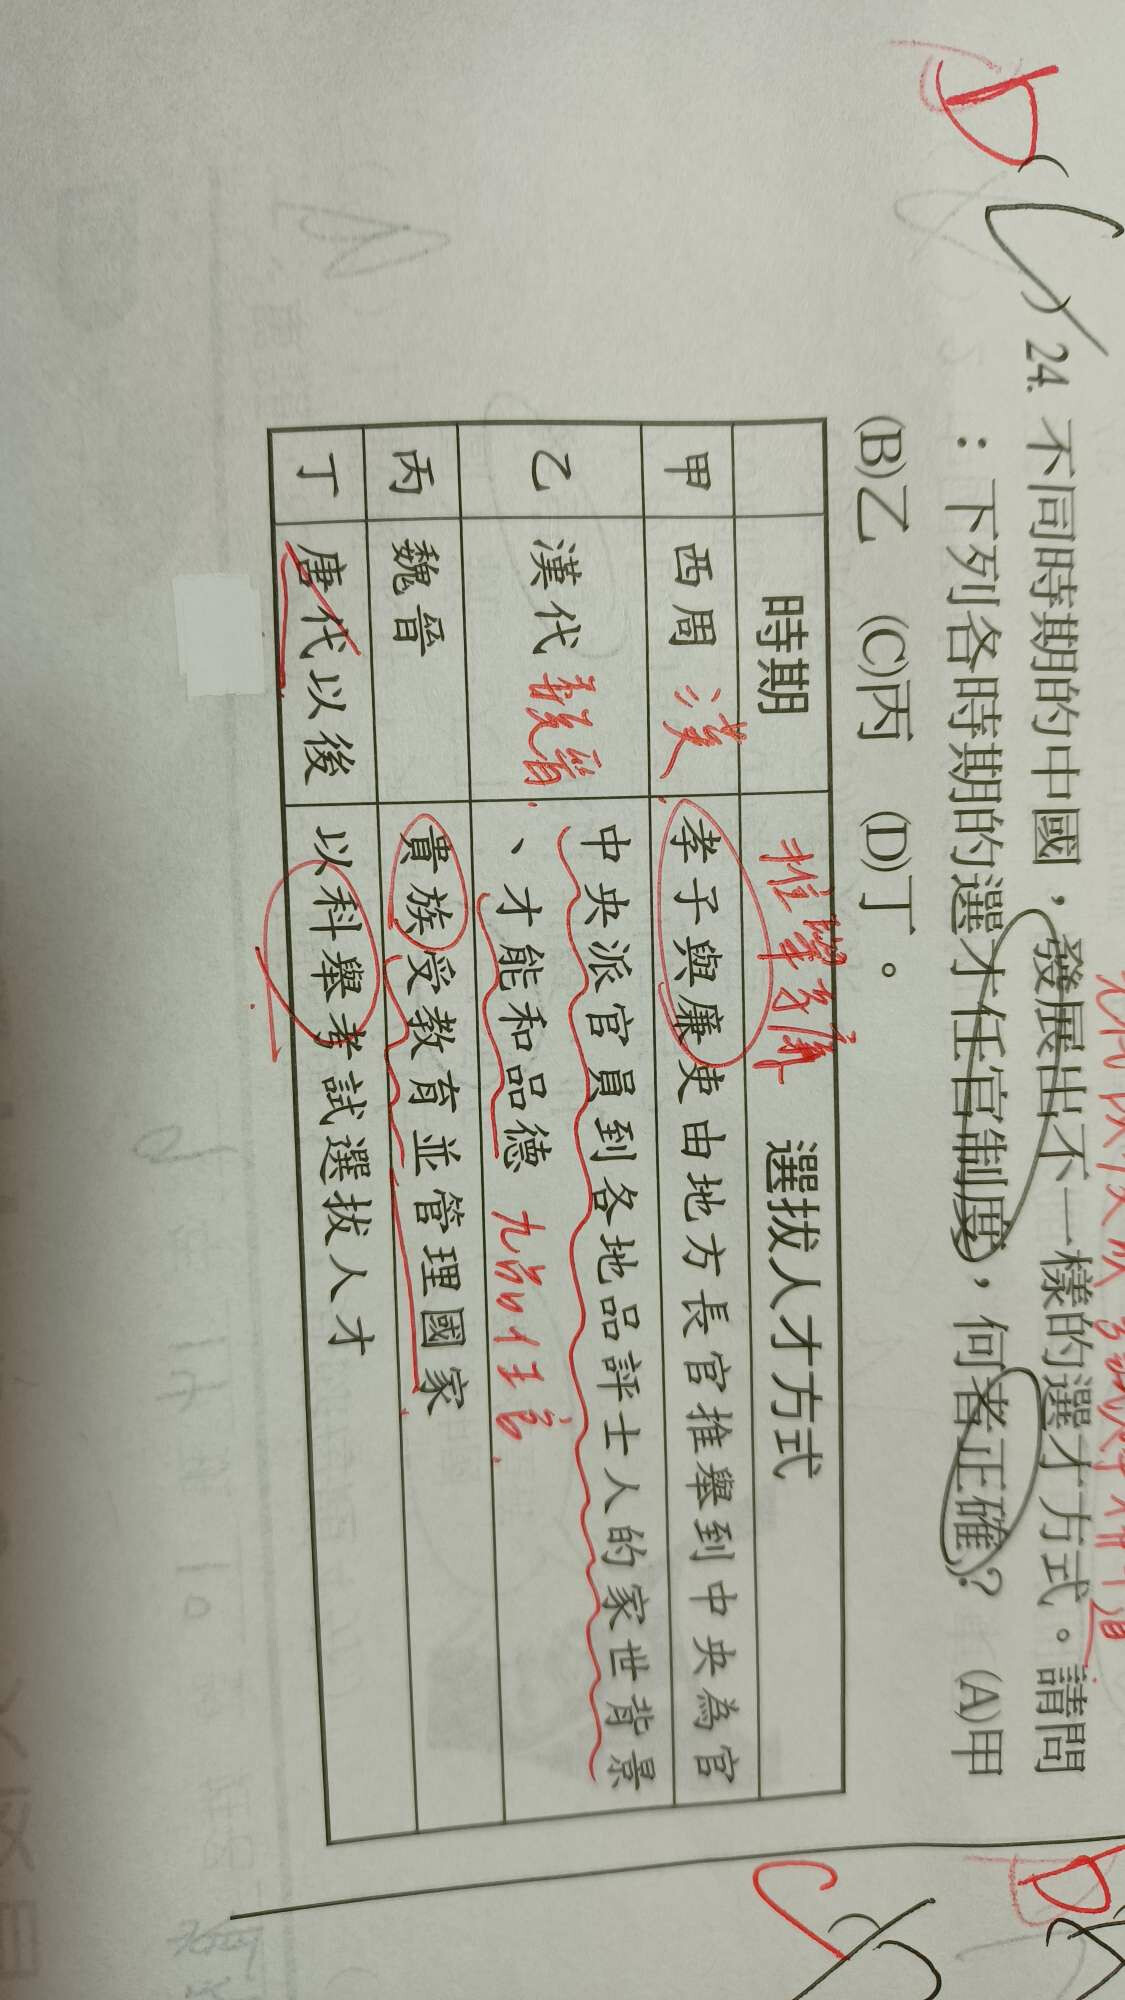 D
( ) 24. 不同時期的中國，發展出不一樣的選才方式。請問
：下列各時期的選才任官制度，何者正確？ (A)甲
(B)乙 (C)丙 (D)丁。
時期 選拔人才方式
推舉孝廉
甲 西周 漢 孝子與廉吏由地方長官推舉到中央為官
乙 漢代 魏晉 中央派官員到各地品評士人的家世背景
、才能和品德 九品任官
丙 魏晉 貴族受教育並管理國家
丁 唐代以後 以科舉考試選拔人才